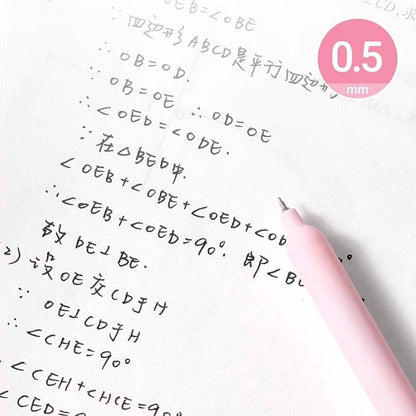 ∠OEB=∠OBE
∵四边形ABCD是平行四边形
∴OB=OD.
∵OB=OE ∴OD=OE
∴∠OED=∠ODE.
∵在△BED中.
∠OEB+∠OBE+∠OED+∠OD
∴∠OEB+∠OED=90°. 即∠BE
故DE⊥BE.
2)设OE交CD于H
∵OE⊥CD于H
∴∠CHE=90°
∴∠CEH+∠HCE=90°
∠CED=
0.5
mm